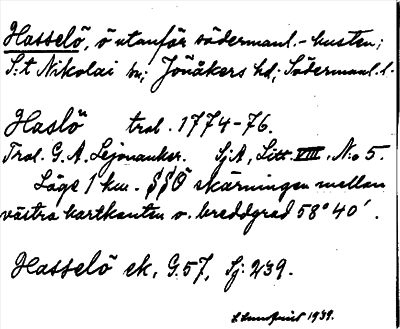 Hasselö, ö utanför södermanl.-kusten;
S:t Nikolai sn; Jönåkers hd; Södermanl. l.
Haslö trol. 1774-76.
Trol. G. A. Lejonanker. SjA, Litt. VIII. No 5.
Läge 1 km. SSÖ skärningen mellan
västra kartkanten o. breddgrad 58° 40'.
Hasselö ek, G.57, Sj. 239.
1939.